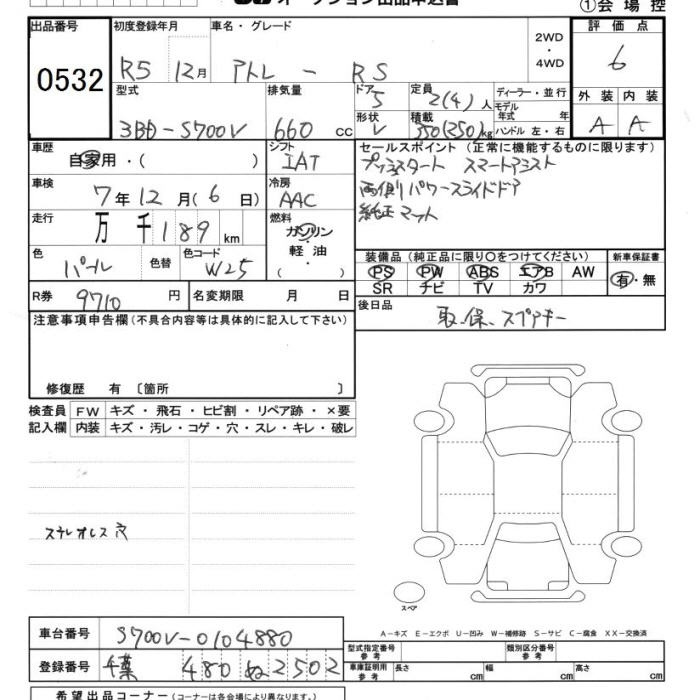 ①会場控
出品番号 初度登録年月 車名・グレード 2WD・4WD 評価点
0532 R5 12月 アトレー RS 6
型式 排気量 ドア 定員 ディーラー・並行 外装 内装
3BD-S700V 660cc 5 2(4)人 モデル年式 年 A A
形状 V 積載 350(250)kg ハンドル 左・右
車歴 自家用・( ) シフト セールスポイント(正常に機能するものに限ります)
IAT プッシュスタート スマートアシスト
車検 7年12月(6日) 冷房 AAC 両側パワースライドドア
走行 万千189km 燃料 ガソリン・軽油( ) 純正マット
色 パール 色替 色コード W25 装備品(純正品に限り○をつけてください) 新車保証書
PS PW ABS エアB AW 有・無
SR ナビ TV カワ
R券 9710円 名変期限 月 日 後日品
取.保.スペアキー
注意事項申告欄(不具合内容等は具体的に記入して下さい)
修復歴 有〔箇所 〕
検査員 FW キズ・飛石・ヒビ割・リペア跡・×要
記入欄 内装 キズ・汚レ・コゲ・穴・スレ・キレ・破レ
ステレオレス穴
スペア
A-キズ E-エクボ U-凹み W-補修跡 S-サビ C-腐食 XX-交換済
車台番号 S700V-0104880
型式指定番号参考 類別区分番号参考
登録番号 千葉 480 ぬ 2502
車庫証明用参考 長さ cm 幅 cm 高さ cm
希望出品コーナー(コーナーは各会場により異なります。)